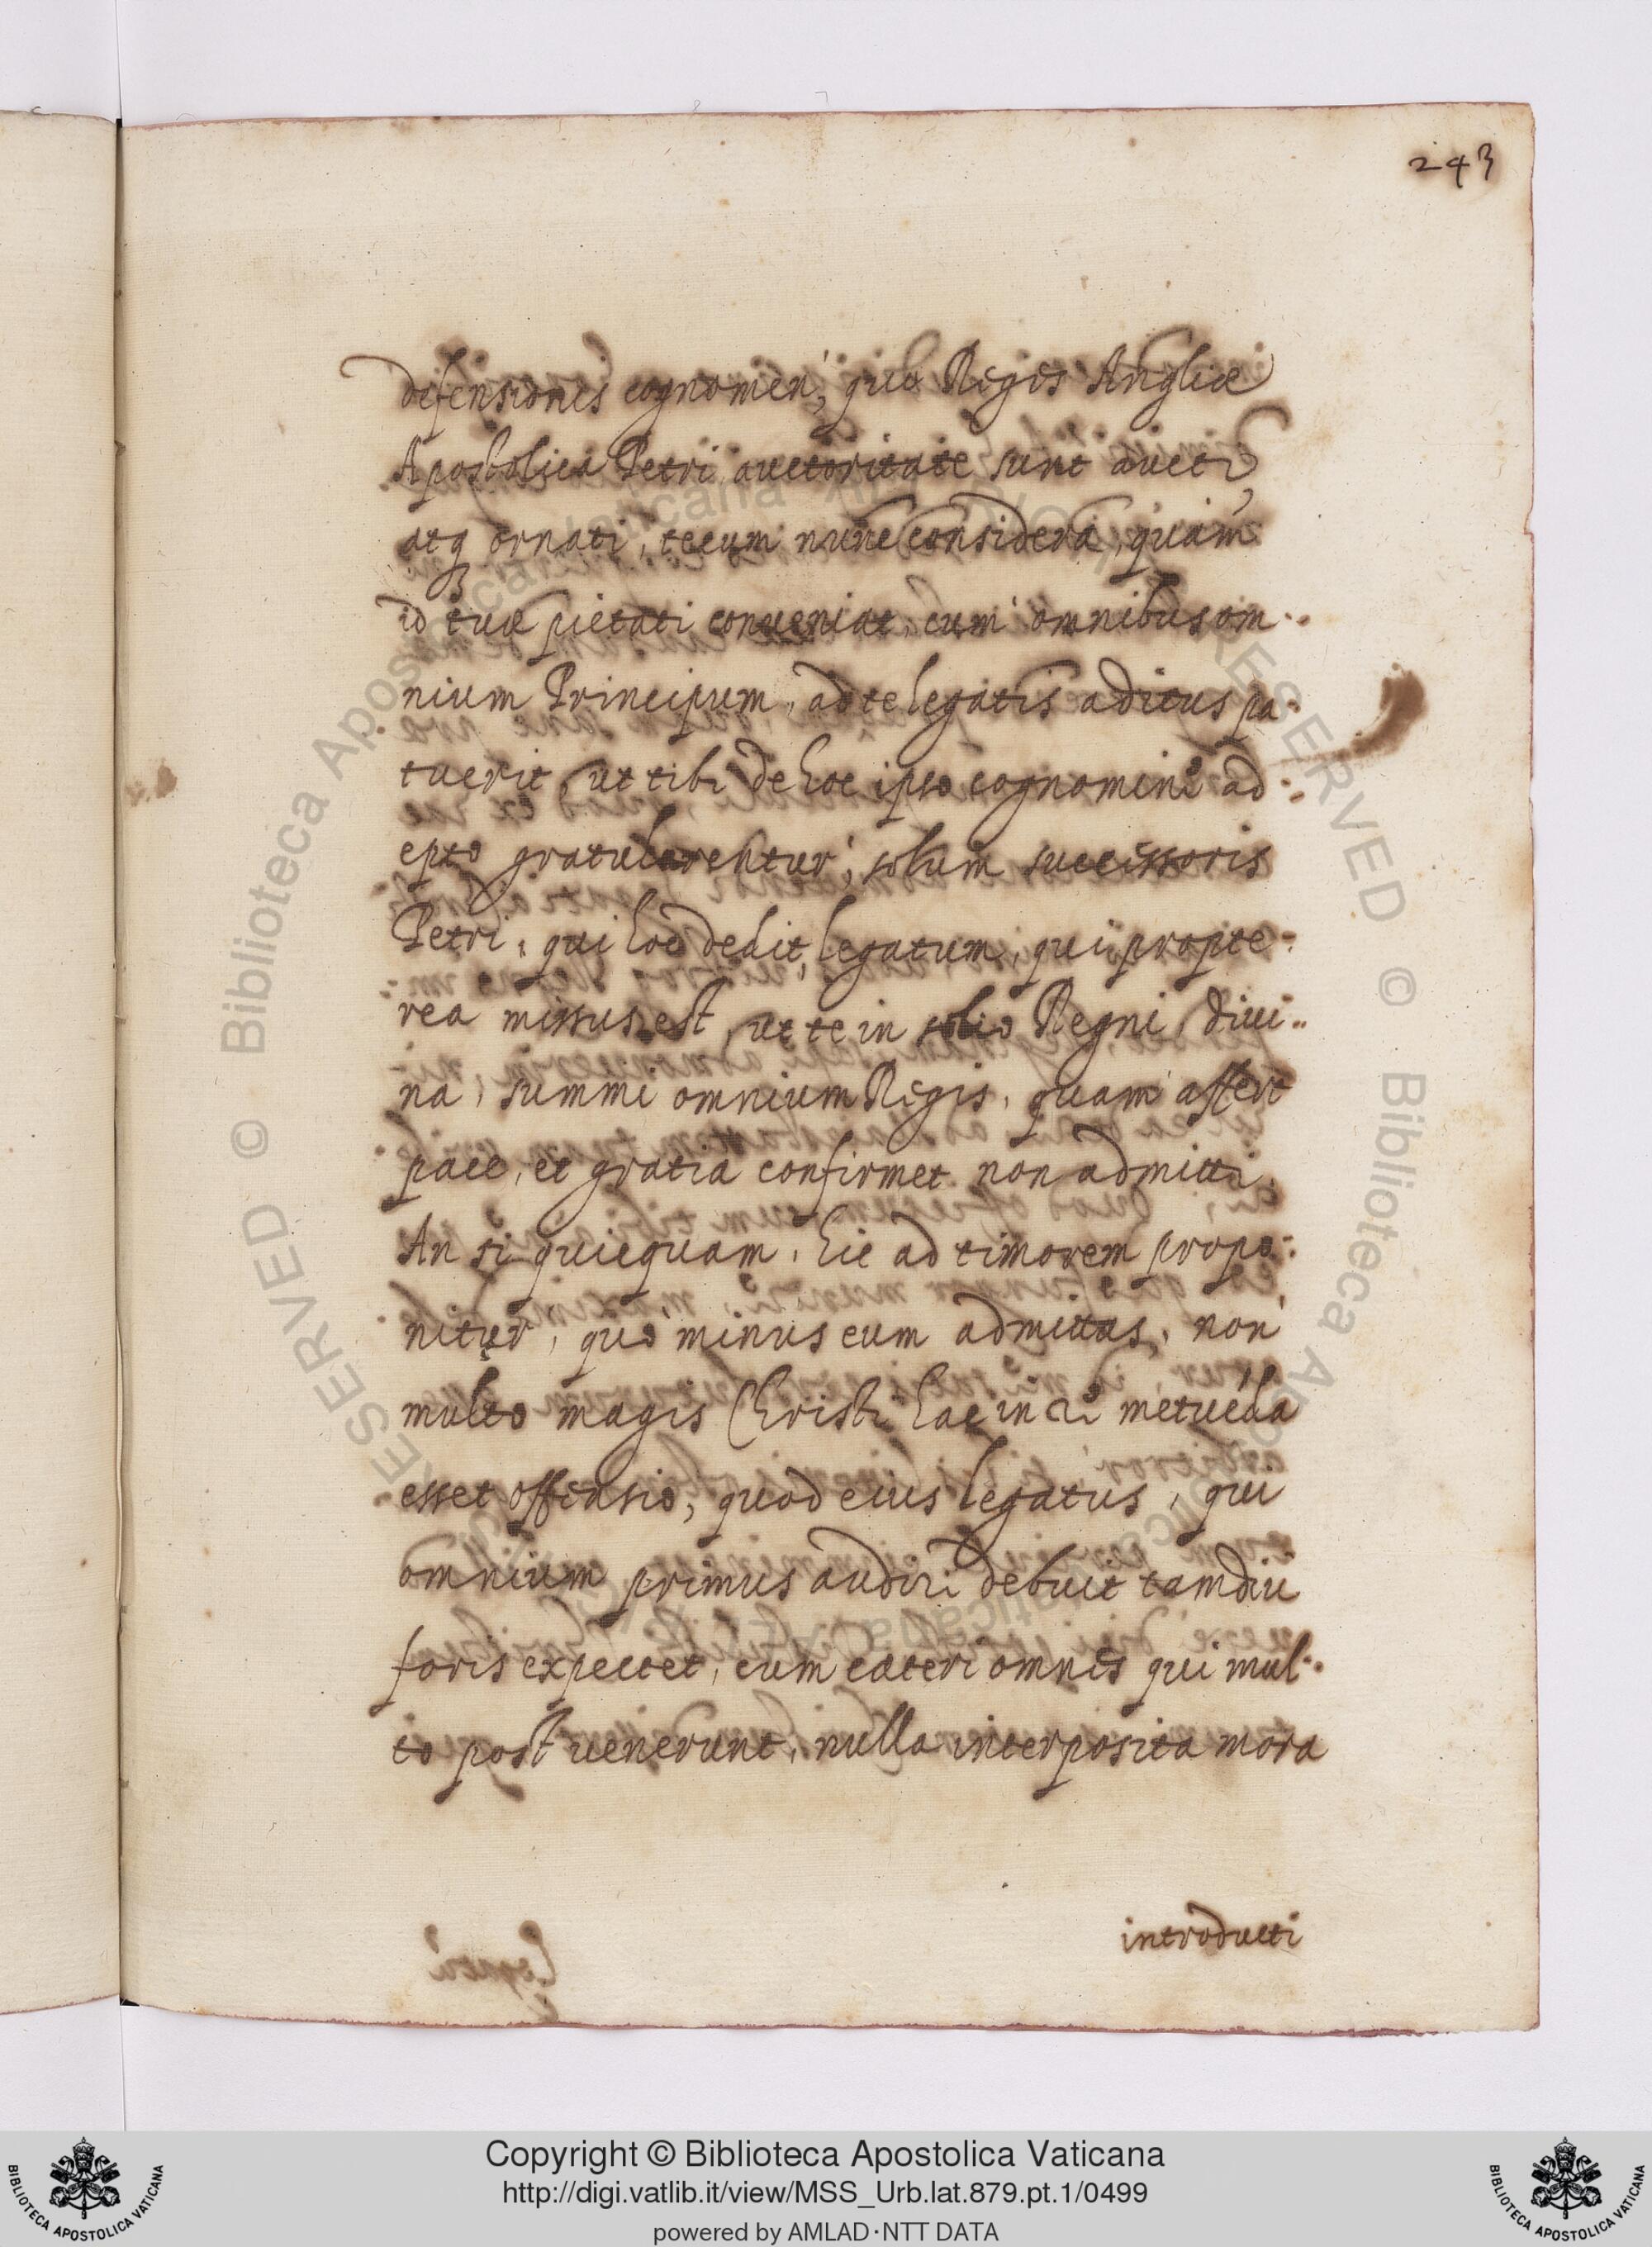 243
defensionis cognomen, quo Regis Angliæ
Apostolica Petri auctoritate sunt aucti
atq ornati, tecum nunc considera, quam
id tuæ pietati conueniat, cum omnibus om
nium Principum, ad te legatis aditus pa-
tuerit, ut tibi de hoc ipso cognomine ad
epto gratularentur, solum successoris
Petri, qui hoc dedit, legatum, qui propte-
rea missus est, ut te in solio Regni, diui-
na, summi omnium Regis, quam affert
pace, et gratia confirmet non admitti.
An si quicquam, hic ad timorem propo-
nitur, quo minus eum admittas, non
multo magis Christi hac in re metueda
esset offensio, quod eius legatus, qui
omnium primus audiri debuit tamdiu
foris expectet, cum cæteri omnes qui mul-
to post uenerunt, nulla interposita mora
introducti
RESERVED © Biblioteca Apostolica Vaticana
RESERVED © Biblioteca Apostolica Vaticana
BIBLIOTECA APOSTOLICA VATICANA
Copyright © Biblioteca Apostolica Vaticana
http://digi.vatlib.it/view/MSS_Urb.lat.879.pt.1/0499
powered by AMLAD·NTT DATA
BIBLIOTECA APOSTOLICA VATICANA